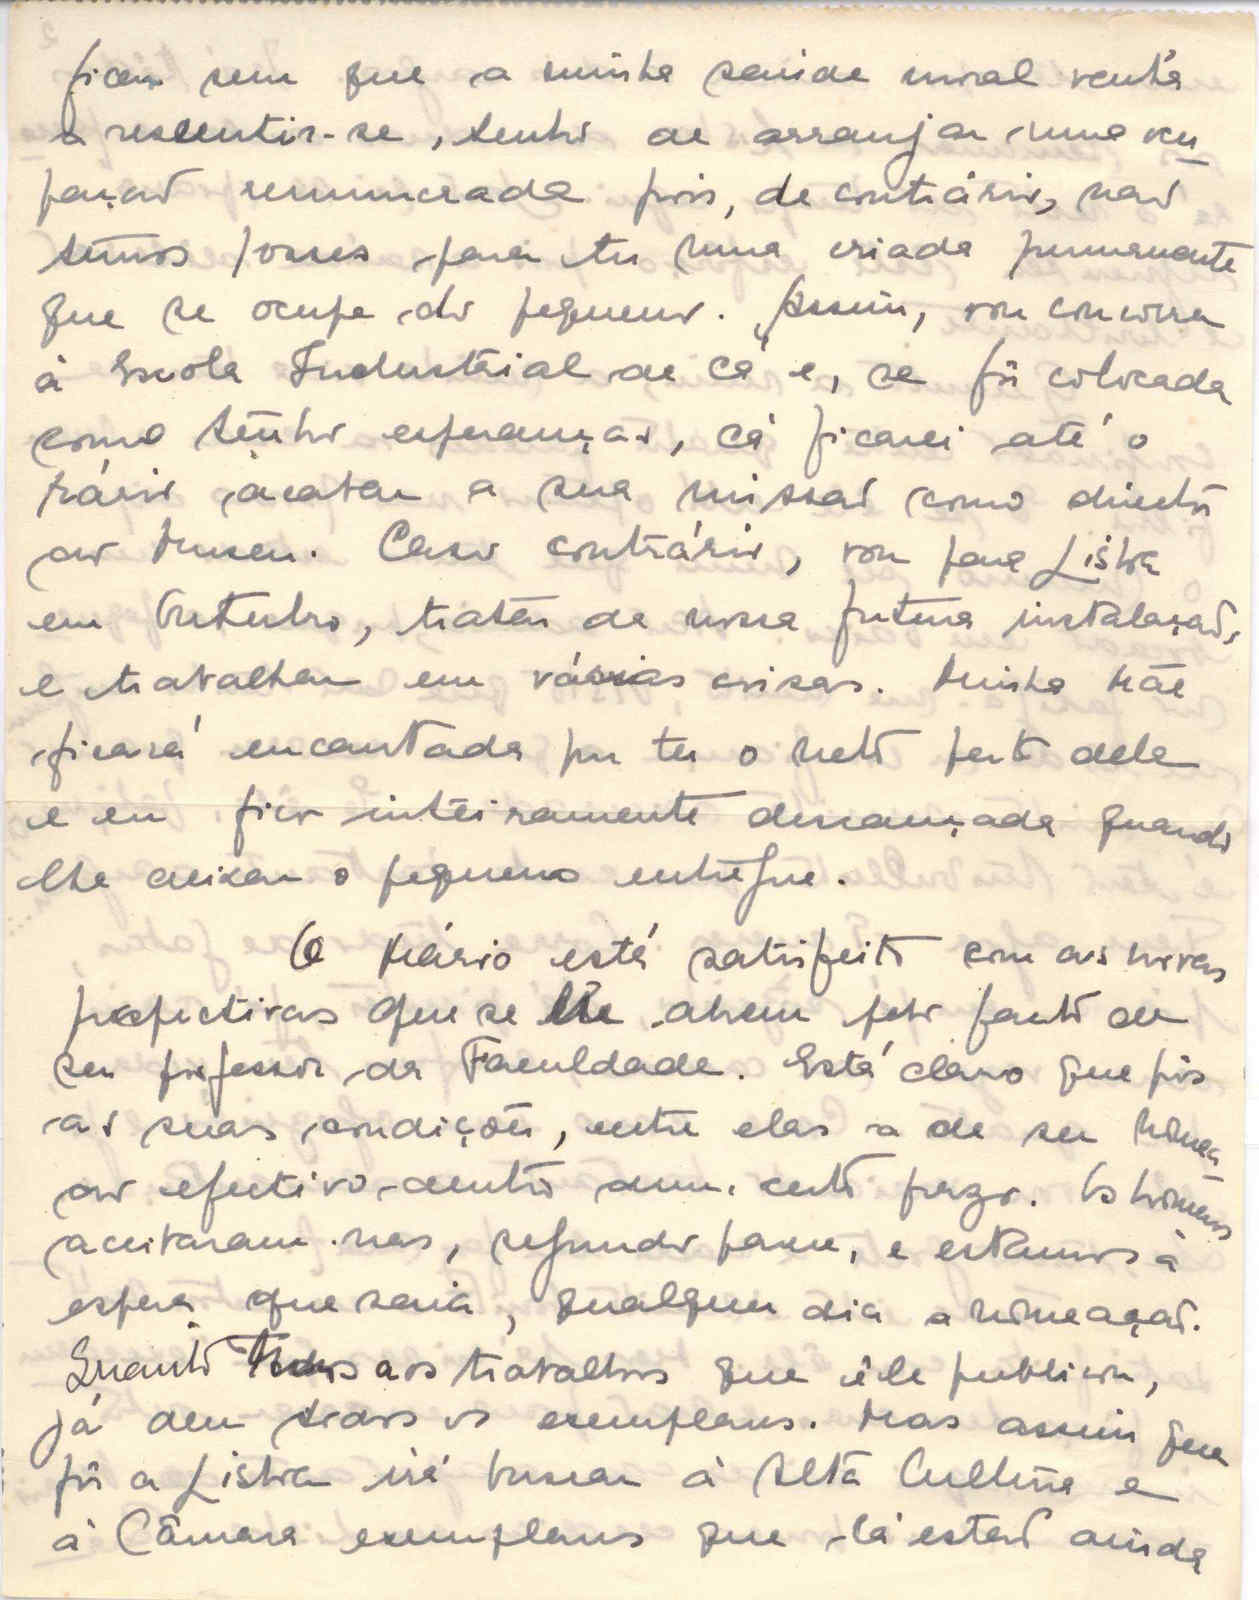 ficar sem que a minha saúde moral venha
a ressentir-se, tenho de arranjar uma ocu-
pação remunerada pois, de contrário, não
temos posses para ter uma criada permanente
que se ocupe do pequeno. Assim, vou concorrer
à Escola Industrial de cá e, se fôr colocada
como tenho esperanças, cá ficarei até o
Mário acabar a sua missão como director
do Museu. Caso contrário, vou para Lisboa
em Outubro, tratar da nossa futura instalação,
e trabalhar em várias coisas. Minha Mãe
ficará encantada por ter o neto perto dela
e eu fico inteiramente descançada quando
lhe deixar o pequeno entregue.
O Mário está satisfeito com as novas
prespectivas que se lhe abrem pelo facto de
ser professor da Faculdade. Está claro que pôs
as suas condições, entre elas a de ser nomea-
do efectivo dentro dum certo prazo. Os homens
aceitaram-nas, segundo parece, e estamos à
espera que saia, qualquer dia a nomeação.
Quanto aos trabalhos que êle publicou,
já deu todos os exemplares. Mas assim que
fôr a Lisboa irá buscar à Alta Cultura e
à Câmara exemplares que lá estão ainda